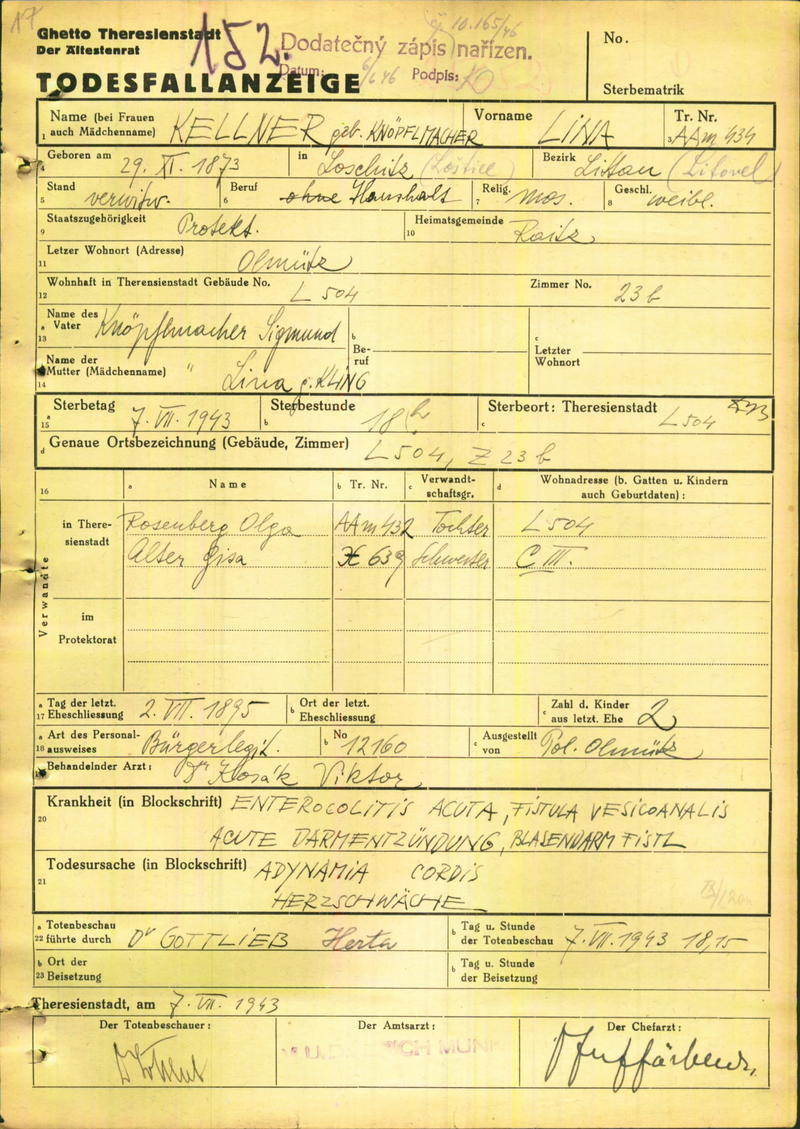 17
Ghetto Theresienstadt
Der Ältestenrat
152.
10.165/46
Dodatečný zápis nařízen.
Datum: 6/6 46 Podpis:
No.
TODESFALLANZEIGE
Sterbematrik
Name (bei Frauen auch Mädchenname) KELLNER geb. KNÖPFLMACHER Vorname LINA Tr. Nr. AAm 434
Geboren am 29. XI. 1873 in Loschitz (Loštice) Bezirk Littau (Litovel)
Stand verwitw. Beruf ohne Haushalt Relig. mos. Geschl. weibl.
Staatszugehörigkeit Protekt. Heimatsgemeinde Raitz
Letzer Wohnort (Adresse) Olmütz
Wohnhaft in Theresienstadt Gebäude No. L 504 Zimmer No. 23 b
Name des Vater Knöpflmacher Sigmund
Beruf
Letzter Wohnort
Name der Mutter (Mädchenname) " Lina g. KLING
Sterbetag 7. VII. 1943 Sterbestunde 18 h Sterbeort: Theresienstadt L 504
Genaue Ortsbezeichnung (Gebäude, Zimmer) L 504, Z 23 b
16 a Name b Tr. Nr. c Verwandtschaftsgr. d Wohnadresse (b. Gatten u. Kindern auch Geburtdaten):
Verwandte
in Theresienstadt Rosenberg Olga AAm 432 Tochter L 504
Alter Gisa 639 Schwester C III.
im Protektorat
Tag der letzt. Eheschliessung 2. VII. 1895 Ort der letzt. Eheschliessung Zahl d. Kinder aus letzt. Ehe 2
Art des Personalausweises Bürgerlegit. No 12160 Ausgestellt von Pol. Olmütz
Behandelnder Arzt: Dr Kosák Viktor
Krankheit (in Blockschrift) ENTEROCOLITIS ACUTA, FISTULA VESICOANALIS
ACUTE DARMENTZÜNDUNG, BLASENDARM FISTL
Todesursache (in Blockschrift) ADYNAMIA CORDIS
HERZSCHWÄCHE
Totenbeschau führte durch Dr GOTTLIEB Herta Tag u. Stunde der Totenbeschau 7. VII. 1943 18,15
Ort der Beisetzung Tag u. Stunde der Beisetzung
Theresienstadt, am 7. VII. 1943
Der Totenbeschauer: Der Amtsarzt: Der Chefarzt: